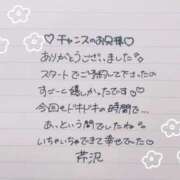 ♡チャンスのお兄様♡
ありがとうございました
スタートでご予約してて下さったの
すごーく嬉しかったです♡
今回もドキドキの時間で…
あっという間でしたね
いちゃいちゃできて幸せでした♡
芹沢